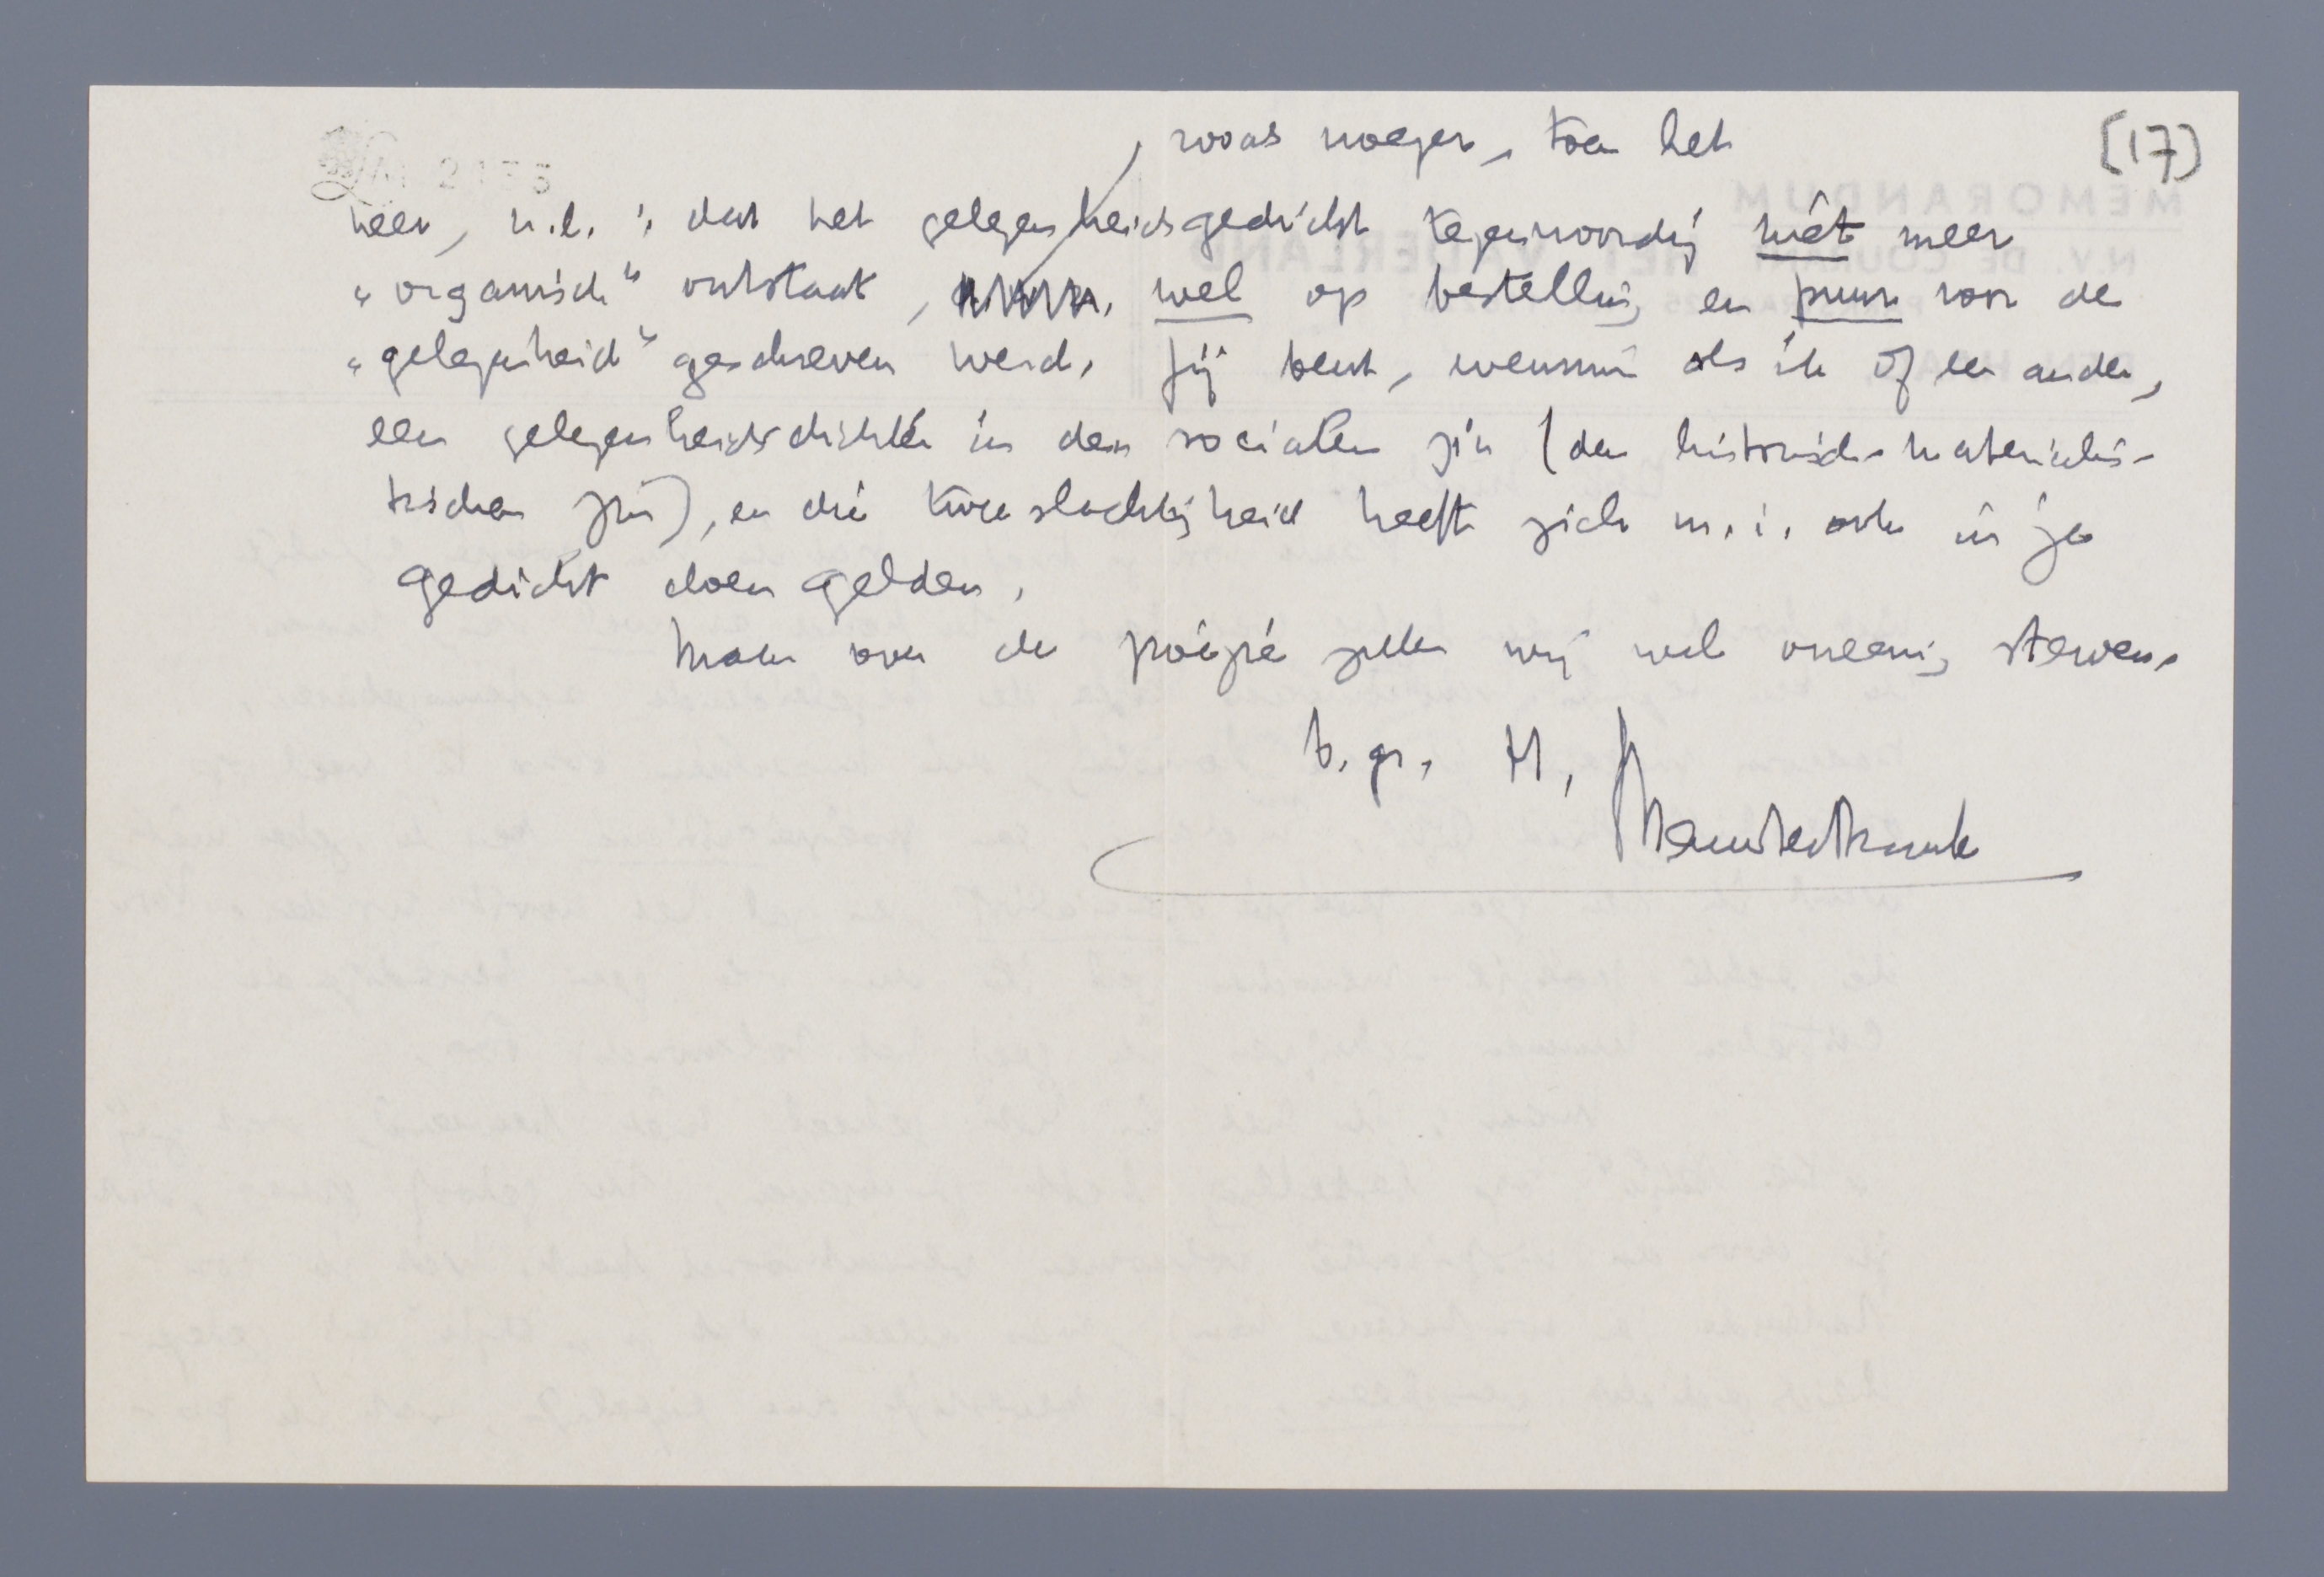 [17]
zooals vroeger, toen het
neer, n.l.: dat het gelegenheidsgedicht tegenwoordig niét meer
„organisch" ontstaat, wel op bestelling en puur voor de
„gelegenheid" geschreven werd. Jij bent, evenmin als ik of een ander,
een gelegenheidsdichter in den socialen zin (den historisch-materialis-
tischen zin), en die tweeslachtigheid heeft zich m.i. ook in je
gedicht doen gelden.
Maar over de poëzie zullen wij wel oneenig sterven.
b. gr. H,
Menno ter Braak